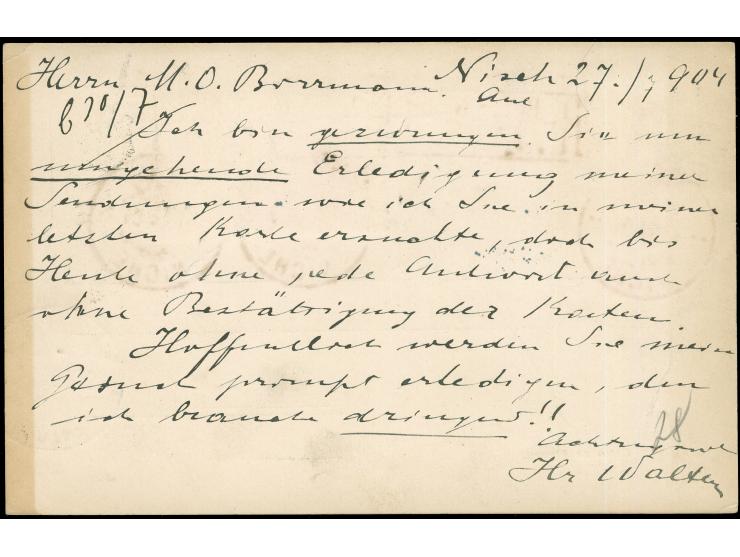 Herrn M. O. Borrmann. Nisch 27./7 904
Aue
b 30/7
Ich bin gezwungen Sie um
umgehende Erledigung meiner
Sendungen wie ich Sie in meiner
letzten Karte ersuchte, doch bis
Heute ohne jede Antwort auch
ohne Bestättigung der Karten.
Hoffentlich werden Sie mein
Gesuch prompt erledigen, den
ich brauche dringend!!
28
Achtungsvoll
Hr Walten